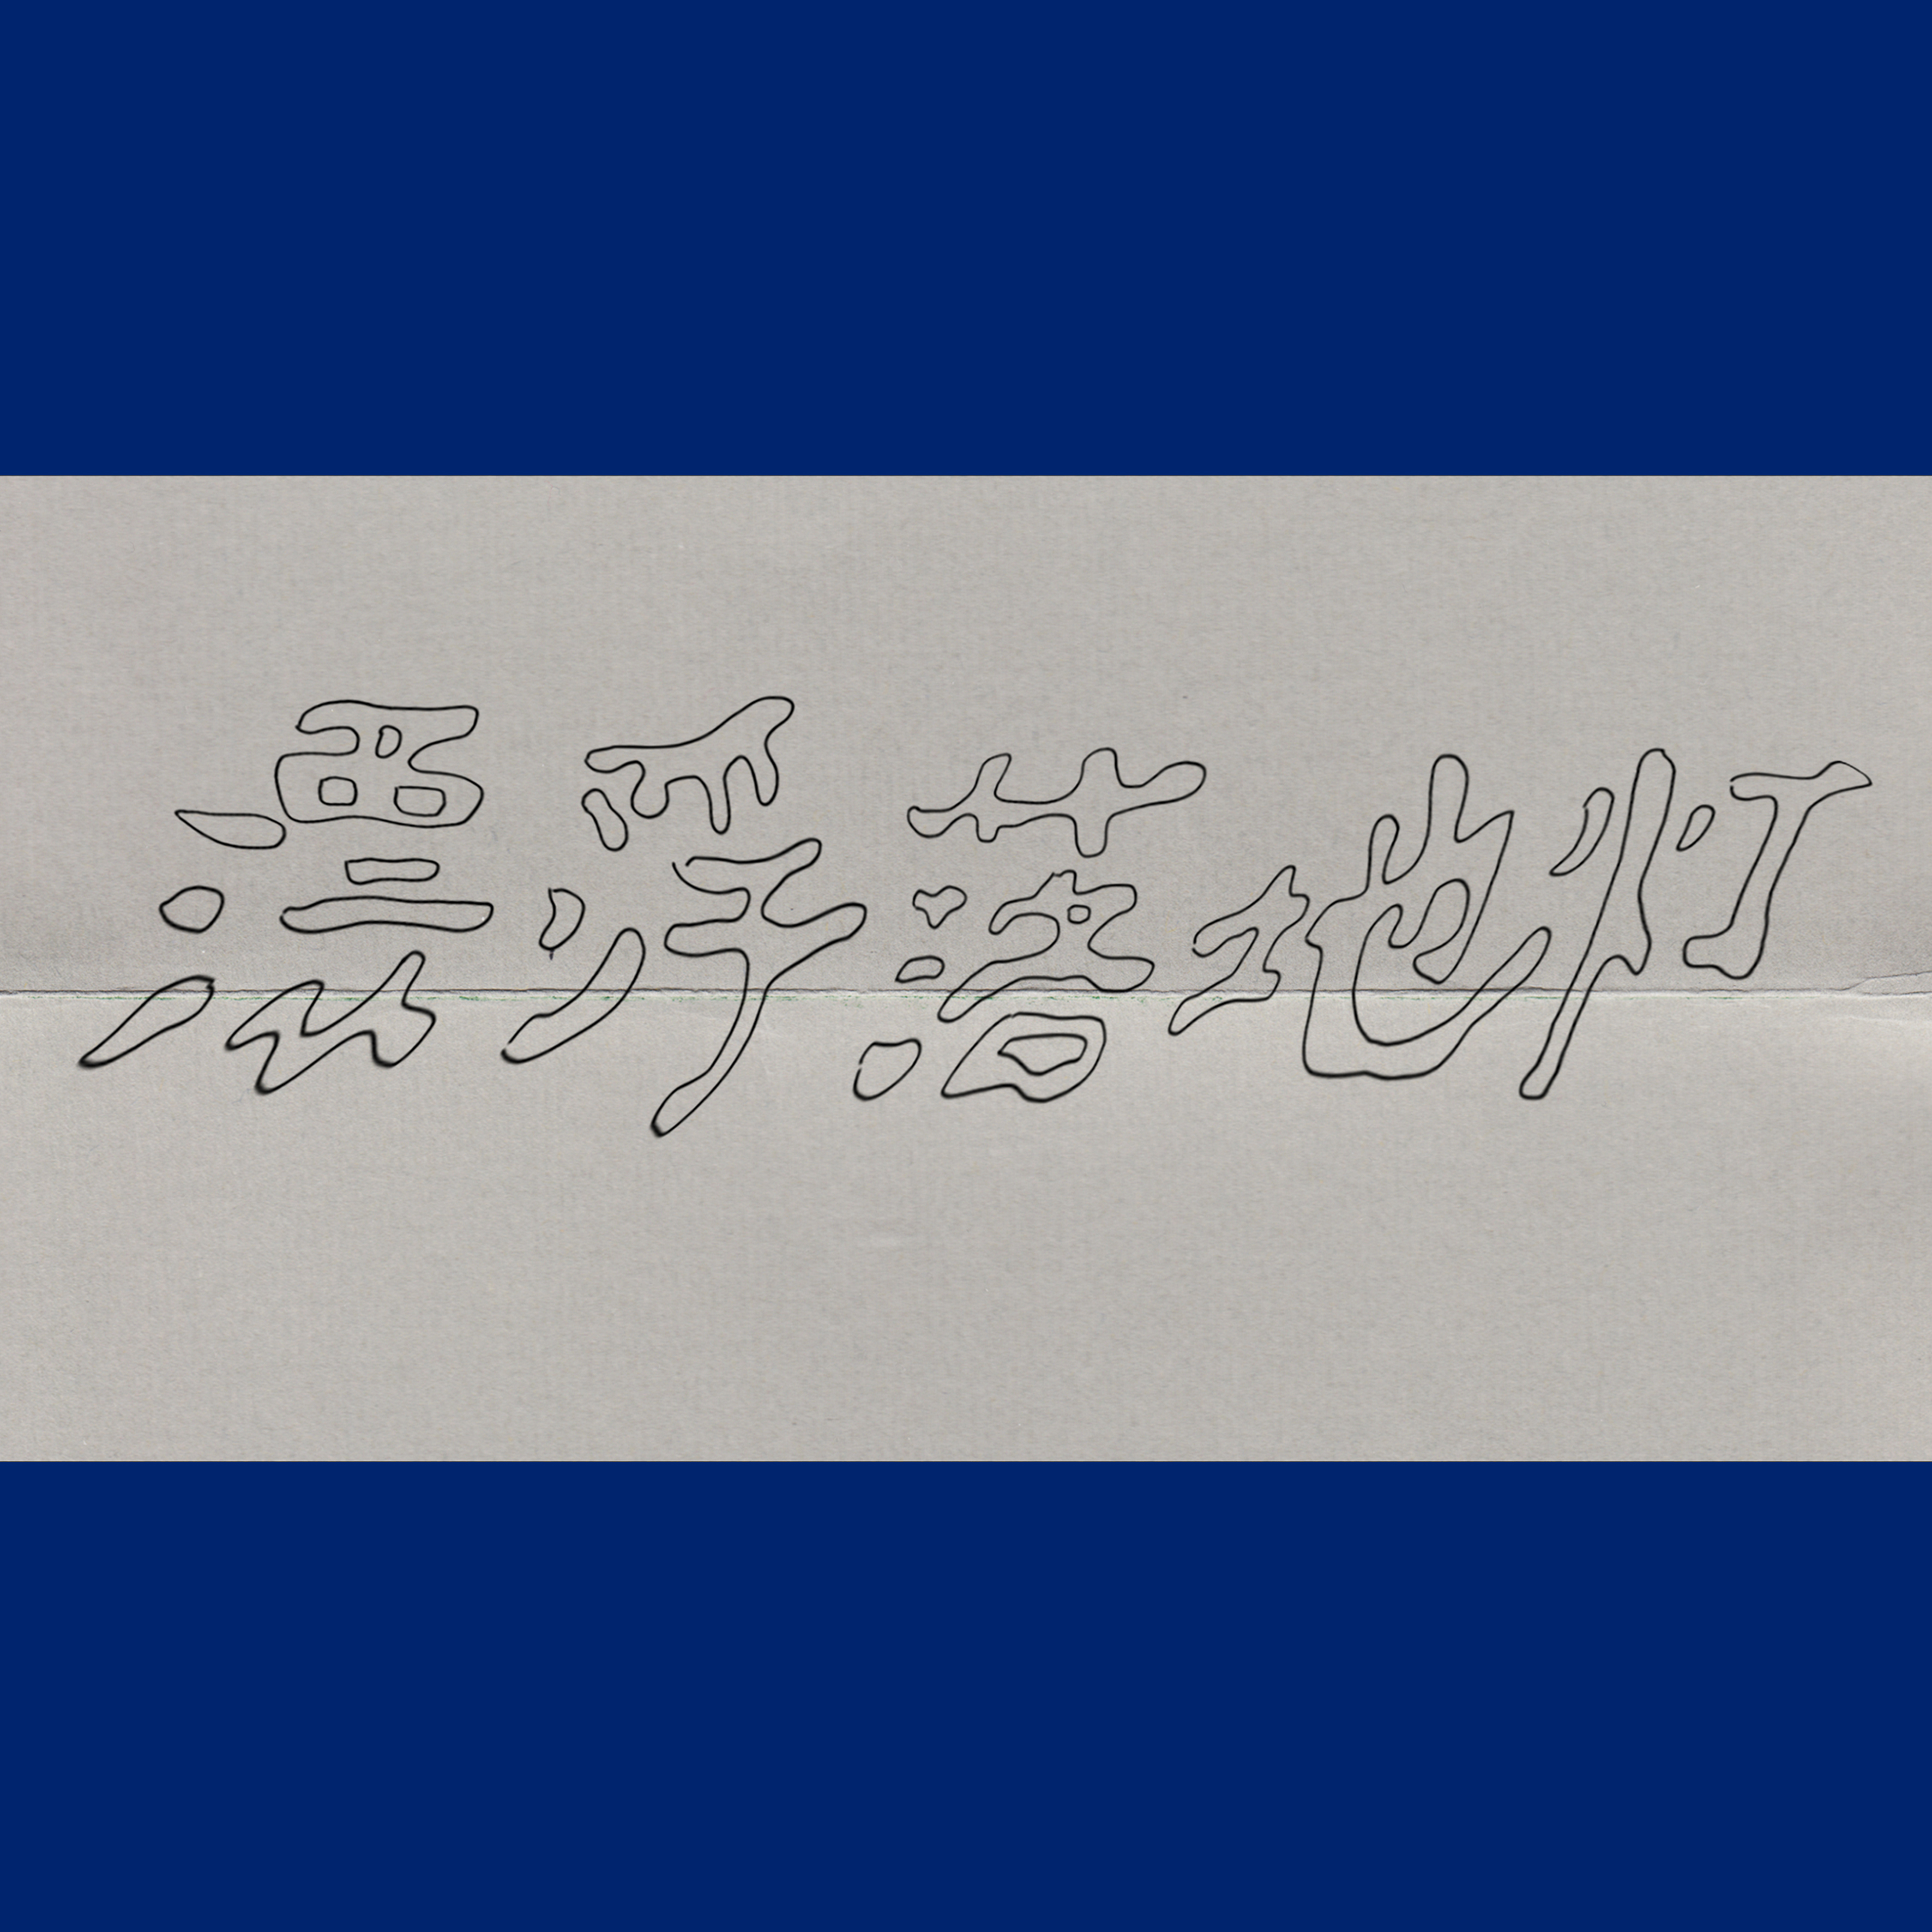 漂浮落地灯